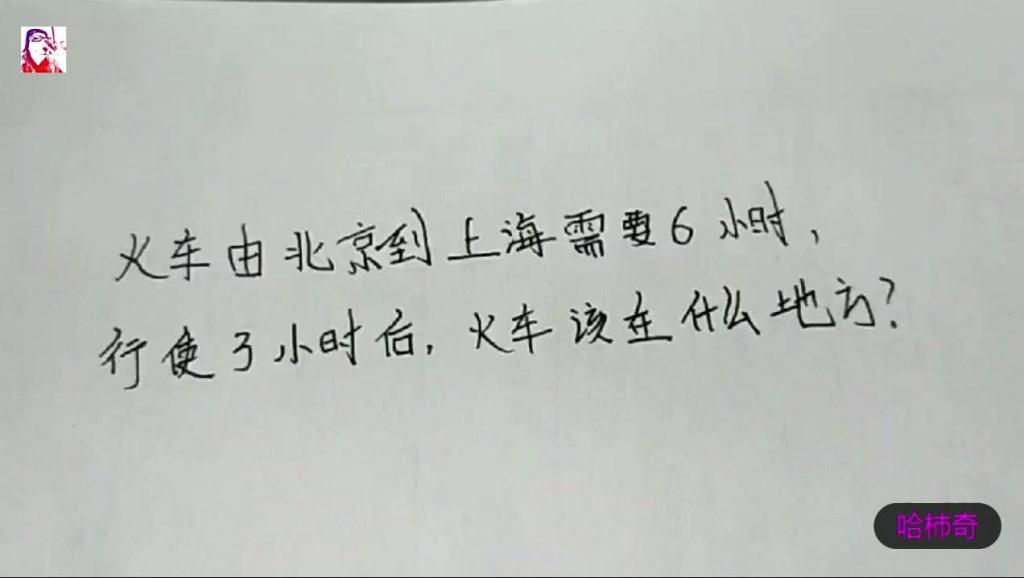 火车由北京到上海需要6小时，
行使3小时后，火车该在什么地方？
哈柿奇